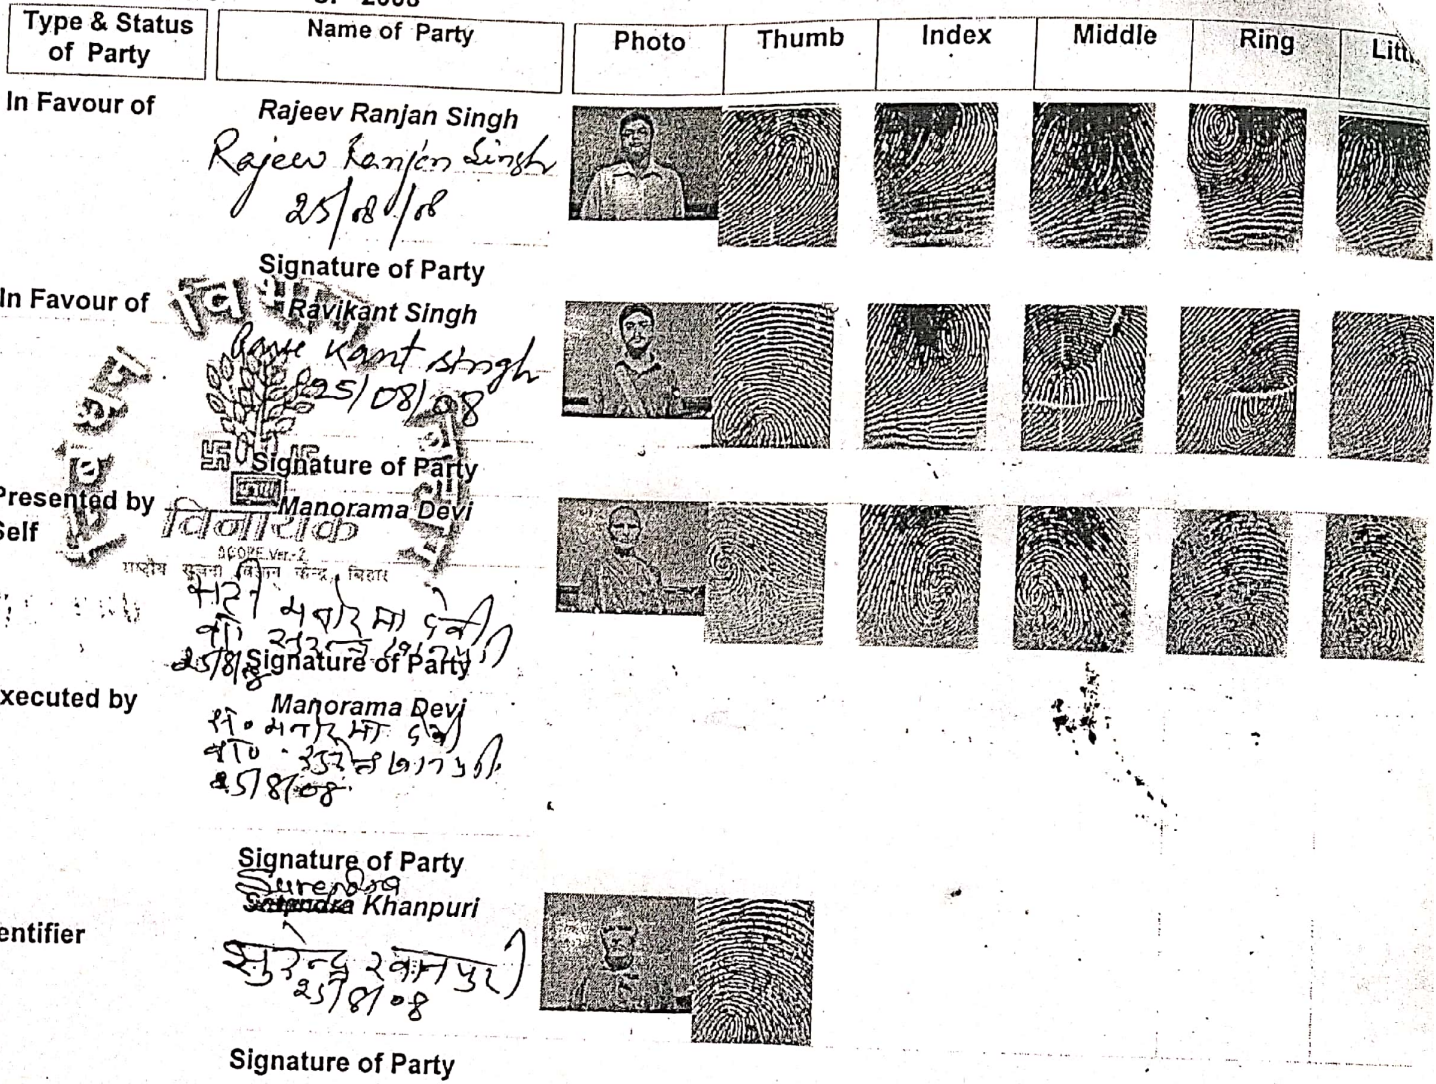 2008
Type & Status of Party
Name of Party
Photo
Thumb
Index
Middle
Ring
In Favour of
Rajeev Ranjan Singh
Rajeev Ranjan Singh
25/08/08
Signature of Party
In Favour of
Ravikant Singh
Kant Singh
25/08/08
Signature of Party
Presented by
Self
Manorama Devi
विनायक
SCOPE Ver.-2
राष्ट्रीय सूचना विज्ञान केन्द्र, बिहार
मनोरमा देवी
25/8/08
Signature of Party
xecuted by
Manorama Devi
मनोरमा देवी
25/8/08
Signature of Party
Surendra
Khanpuri
entifier
सुरेन्द्र खानपुरी
25/8/08
Signature of Party